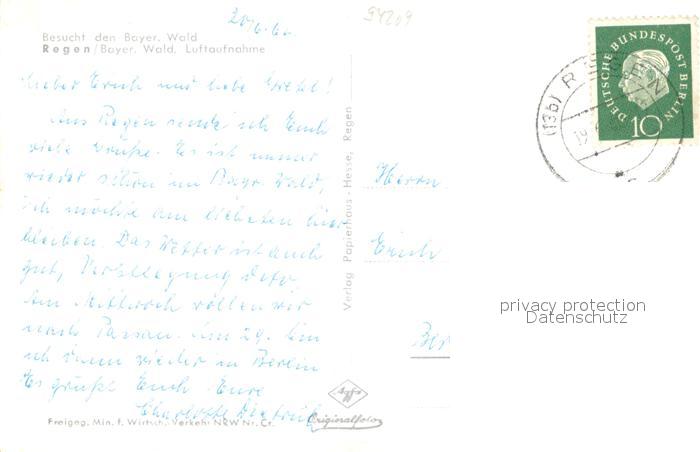 20/6.60.
94209
Besucht den Bayer. Wald
Regen/Bayer. Wald, Luftaufnahme
Lieber Erich und liebe Gretel!
Aus Regen sende ich Euch
viele Grüße. Es ist immer
wieder schön im Bayr. Wald,
ich möchte am liebsten hier
bleiben. Das Wetter ist auch
gut, Verpflegung dito.
Am Mittwoch wollen wir
nach Passau. Am 29. bin
ich dann wieder in Berlin
Es grüßt Euch Eure
Charlotte
Freigeg. Min. f. Wirtsch. Verkehr NRW Nr. Cr.
Verlag Papierhaus-Hesse, Regen
Agfa
Originalfoto
Herrn
Erich
Ber
DEUTSCHE BUNDESPOST BERLIN
10
(13b) REGEN
19
privacy protection
Datenschutz